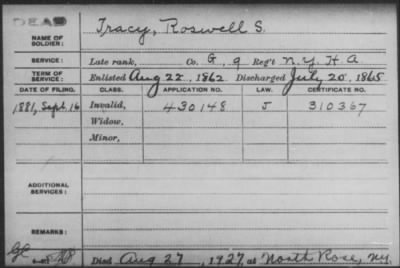 DEAD
NAME OF SOLDIER: Tracy, Roswell S.
SERVICE: Late rank, Co. G, 9 Reg't N.Y. H A.
TERM OF SERVICE: Enlisted Aug 22, 1862 Discharged July 20, 1865
DATE OF FILING. CLASS. APPLICATION NO. LAW. CERTIFICATE NO.
1881, Sept. 16 Invalid, 430148 J 310367
Widow,
Minor,
ADDITIONAL SERVICES:
REMARKS:
Died Aug 27, 1927, at North Rose, N.Y.